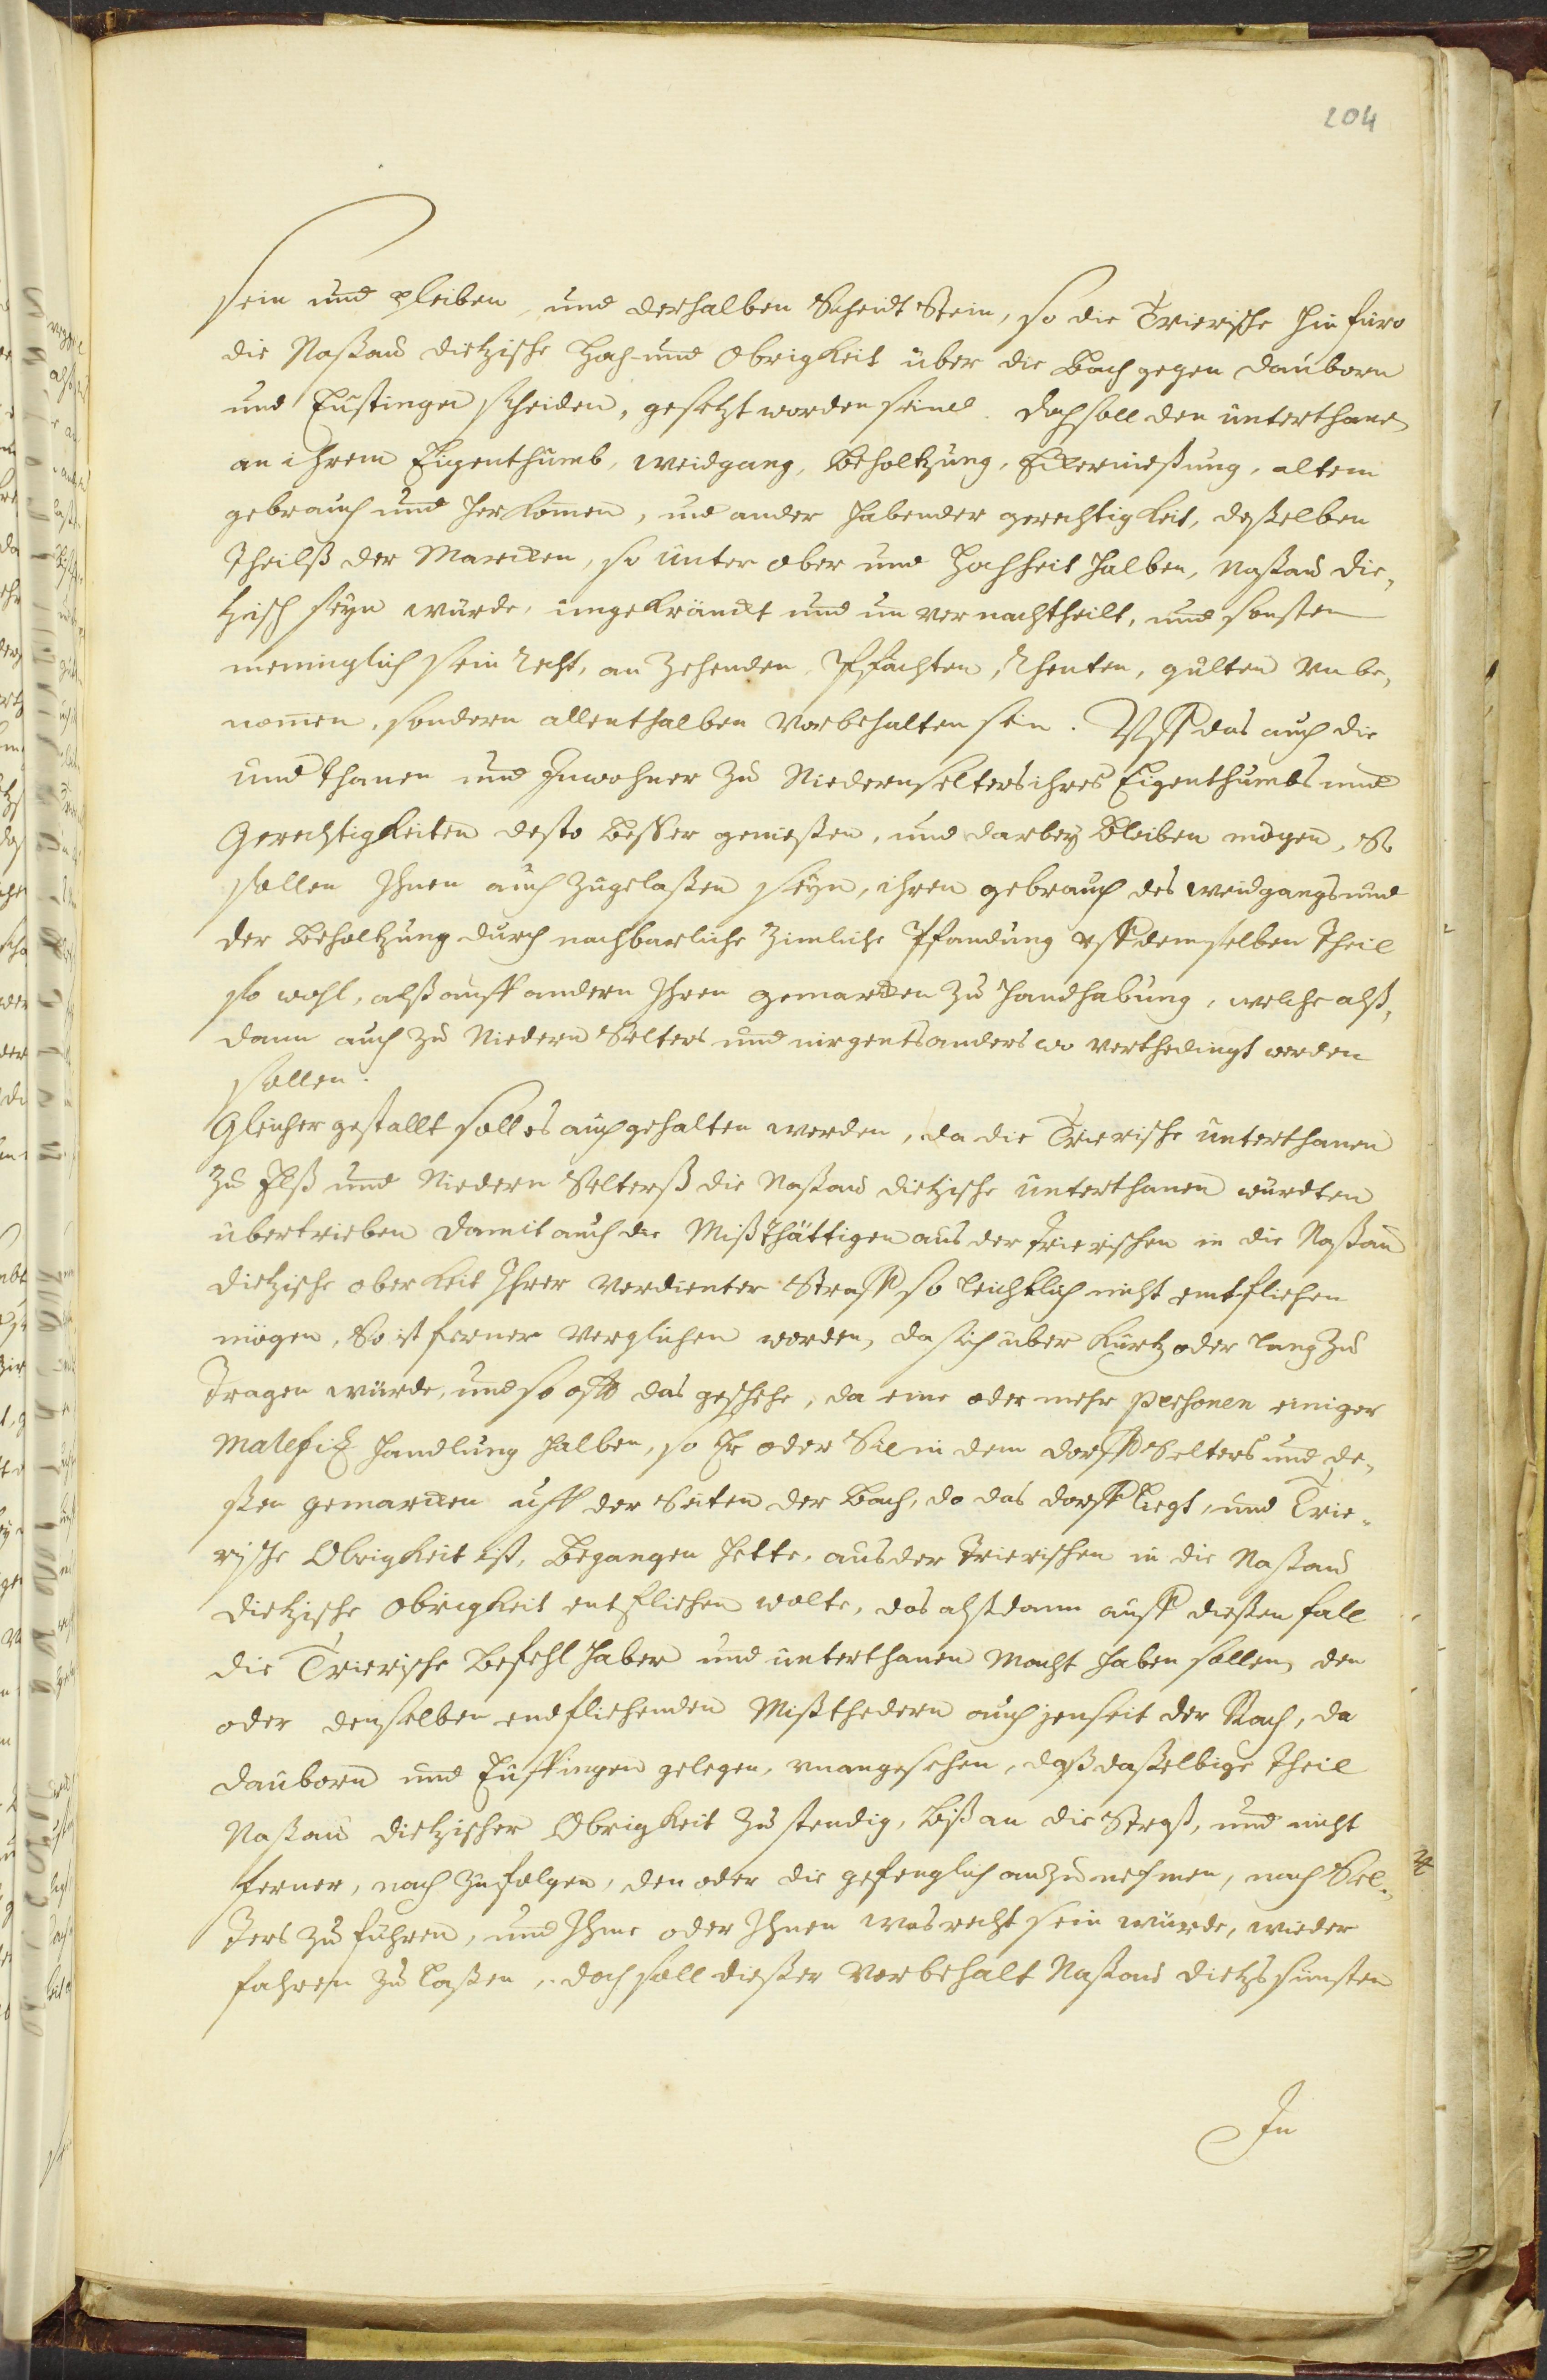 204
sein und pleiben, und derhalben Scheidt Stein, so die Trierische hin füro
die Naßaw dietzische Hoch- und Obrigkeit über die Bach gegen dauborn
und Eustingen scheiden, gesetzt worden seind. Doch soll den unterthanen
an ihrem Eigenthumb, weidgang, beholtzung, Eckernießung, altem
gebrauch und herkomen, und ander habender gerechtigkeit, deßelben
theilß der Marcken, so unter ober und Hochheit halben, Naßaw die,
tzisch seyn würde, ungekränckt und un vernachtheilt, und sonsten
menniglich sein recht, an Zehenden Pfachten, Rhenten, gulten vnbe,
nommen, sondern allenthalben vorbehalten sein. Vff das auch die
underthanen und Inwohner zu Niedernselters ihres Eigenthumbs und
Gerechtigkeiten desto beßer genießen, und darbey bleiben mögen, So
sollen Ihnen auch zugelaßen seyn, ihren gebrauch des weidgangs und
der beholtzung durch nachbarliche Zimliche Pfandung vff demselben theil
so wohl, alß auff andern Ihren gemarcken zu handhabung, welche alß,
dann auch zu Niedern Selters und nirgents anders wo verthedingt werden
sollen.
Gleicher gestallt soll es auch gehalten werden, da die Trierische unterthanen
zu Elß und Niedern Selterß die Naßaw dietzische unterthanen würdten
übertrieben damit auch die Mißthättigen aus der trierischen in die Naßaw
dietzische oberkeit Ihrer verdienter Straff so leichtlich nicht entfliehen
mögen, So ist ferner verglichen worden, da sich über kurtz oder lang zu
tragen würde, und so offt das geschehe, da eine oder mehr personen einiger
Malefitz handlung halben, so Er oder Sie in dem dorff Selters und de,
ßen gemarcken uff der Seiten der Bach, do das dorff liegt, und Trie,
rische Obrigkeit ist, begangen hette, aus der trierischen in die Naßaw
dietzische Obrigkeit entfliehen wolte, das alßdann auff dießen fall
die Trierische Befehlhaber und unterthanen Macht haben sollen, den
oder denselben endfliehenden Mißthedern auch jenseit der Bach, da
dauborn und Euffingen gelegen, vnangesehen, daß daßelbige theil
Naßaw dietzischer Obrigkeit zu stendig, biß an die Straß, und nicht
ferner, nach zu folgen, den oder die gefenglich anzunehmen, nach Sel,
ters zu führen, und Ihme oder Ihnen was recht sein würde, wieder
fahren zu laßen, doch soll dießer vorbehalt Naßaw dietz sunsten
In